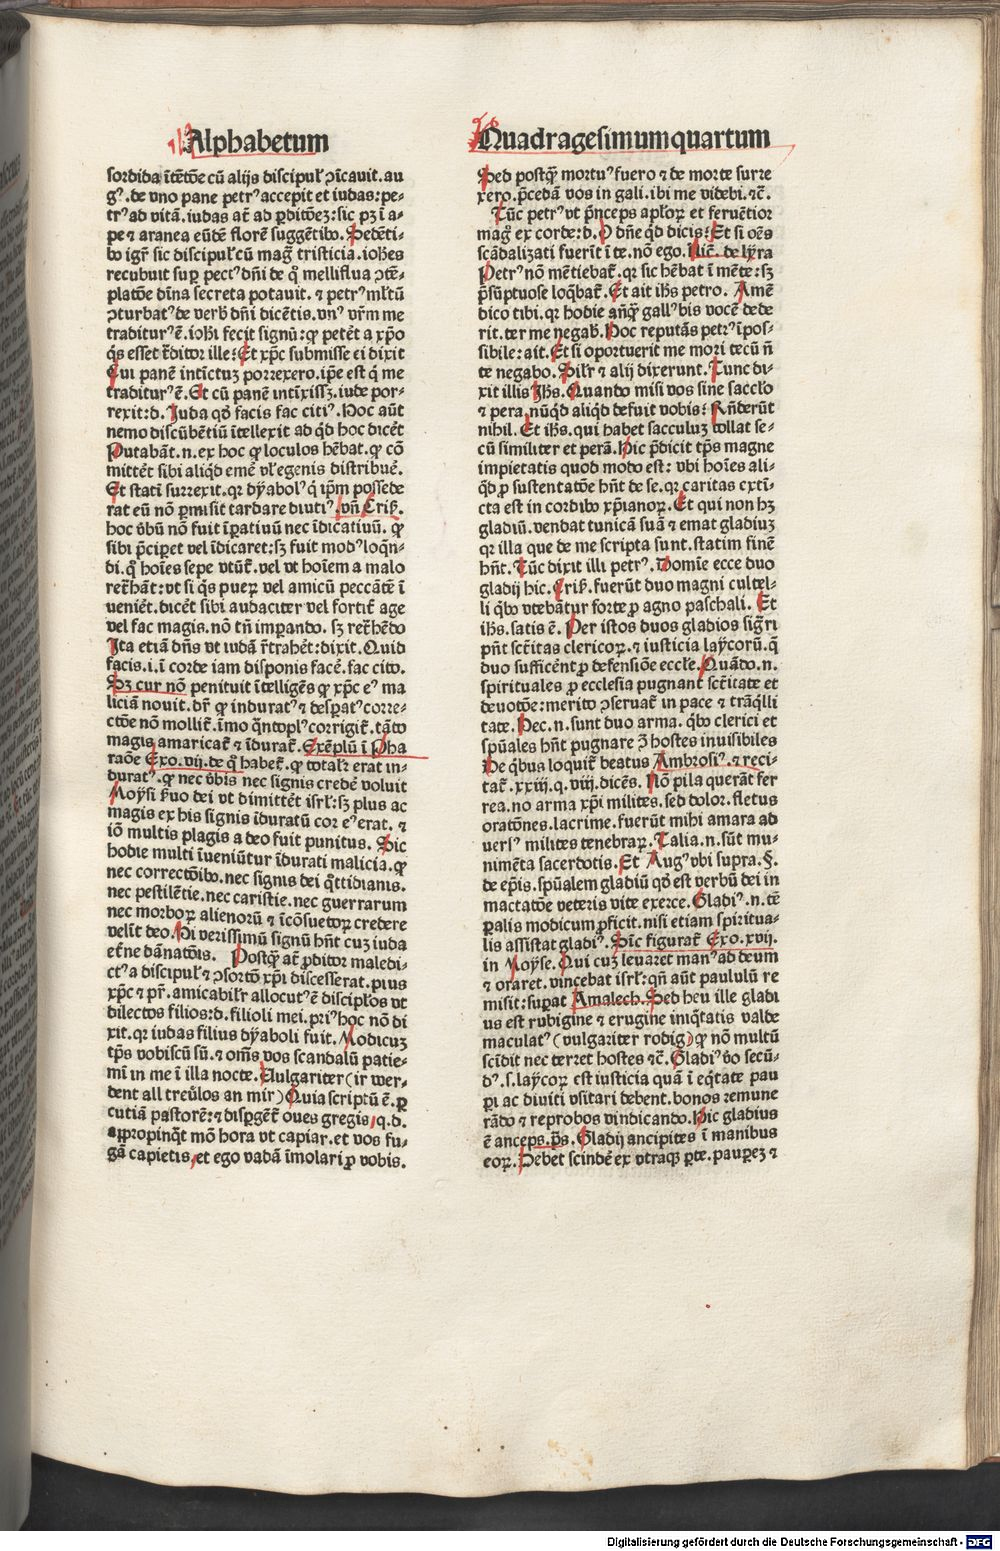 Alphabetum
sordida ītētōe cū alijs discipul' ꝯīcauit. au
gꝰ. de vno pane petrꝰ accepit et iudas: pe-
trꝰ ad vitā. iudas at̄ ad ꝑditōez: sic pꝫ ī a-
pe ⁊ aranea eūdē florē suggētibꝰ. Sedēti-
bꝰ igr̄ sic discipul' cū mag̃ tristicia. iohēs
recubuit suꝑ pectꝰ dn̄i de q̄ melliflua ꝯtē-
platōe dīna secreta potauit. ⁊ petrꝰ ml'tū
ꝯturbatꝰ de verbꝰ dn̄i dicētis. vnꝰ vr̄m me
traditurꝰ ē. ioh̄i fecit signū: ꝙ petēt a xp̄o
q̄s esset ꝓditor ille: Et xp̄c submisse ei dixit
Cui panē intīctuz porrexero. ip̄e est q̄ me
traditurꝰ ē. Et cū panē intīxissꝫ. iude por-
rexit: d. Iuda qd̄ facis fac citiꝰ. Hoc aūt
nemo discūbētiū ītellexit ad qd̄ hoc dicēt
Putabāt. n. ex hoc ꝙ loculos hēbat. ꝙ cō
mittēt sibi aliqd̄ emē vl' egenis distribuē.
Et statī surrexit. qr dyabolꝰ q̄ ip̄m possede
rat eū nō ꝑmisit tardare diutiꝰ. vn̄ Criſ.
hoc v̄bū nō fuit īꝑatiuū nec īdicatiuū. ꝙ
sibi p̄ciperet vel īdicaret: sꝫ fuit modꝰ loqn̄-
di. q̄ hoīes sepe vtūt̄. vel vt hoīem a malo
ret̄hāt: vt si q̄s pueꝝ vel amicū peccātē ī
ueniēt. dicēt sibi audaciter vel fortit̄ age
vel fac magis. nō tn̄ imꝑando. sꝫ ret̄hēdo
Ita etiā dn̄s vt iudā r̄trahēt: dixit. Quid
facis. i. ī corde iam disponis facē. fac cito.
Sꝫ cur nō penituit ītelligēs ꝙ xp̄c eꝰ ma
liciā nouit. dr̄ ꝙ induratꝰ ⁊ desꝑatꝰ corre-
ctōe nō mollit̄. īmo q̄ntoplꝰ corrigit̄. tāto
magis amaricat̄ ⁊ īdurat̄. Exēplū ī Pha
raōe Exo. vij. de q̄ habet̄. ꝙ total'r erat in-
duratꝰ. ꝙ nec v̄bis nec signis credē voluit
Moysi s̄uo dei vt dimittēt isrl': sꝫ plus ac
magis ex his signis īduratū cor eꝰ erat. ⁊
iō multis plagis a deo fuit punitus. Sic
hodie multi īueniūtur īdurati malicia. ꝙ
nec correctōibꝰ. nec signis dei q̄ttidianis.
nec pestilētie. nec caristie. nec guerrarum
nec morboꝝ alienorū ⁊ īcōsuetoꝝ credere
velīt deo. Hi verissimū signū hn̄t cuz iuda
et̄ne dānatōis. Postꝙ̄ at̄ ꝓditor maledi-
ctꝰ a discipul' ⁊ ꝯsortō xp̄i discesserat. pius
xp̄c ⁊ pr̄. amicabil'r allocutꝰ ē discipl'os vt
dilectos filios: d. filioli mei. priꝰ hoc nō di
xit. qr iudas filius dyaboli fuit. Modicuz
tp̄s vobiscū sū. ⁊ om̄s vos scandalū patie-
mī in me ī illa nocte. Uulgariter (ir wer-
dent all treu̇los an mir) Quia scriptū ē. ꝑ
cutiā pastorē: ⁊ disꝑgēt̄ oues gregis. q. d.
appropinq̄t mō hora vt capiar. et vos fu-
gā capietis. et ego vadā īmolari ꝓ vobis.
Quadragesimumquartum
Sed postꝙ̄ mortuꝰ fuero ⁊ de morte surre
xero. p̄cedā vos in gali. ibi me videbi. ⁊c̄.
Tūc petrꝰ vt p̄nceps apl'oꝝ et feruētior
mag̃ ex corde: d. O dn̄e qd̄ dicis: Et si oēs
scādalizati fuerīt ī te. nō ego. Nic̄. de lyra
Petrꝰ nō mētiebat̄. qr sic hēbat ī mēte: sꝫ
p̄sūptuose loq̄bat̄. Et ait ih̄s petro. Amē
dico tibi. qr hodie anq̄ꝫ gallꝰ bis vocē dede
rit. ter me negabꝭ. Hoc reputās petrꝰ īpos-
sibile: ait. Et si oportuerit me mori tecū n̄
te negabo. Sil'r ⁊ alij dixerunt. Tunc di-
xit illis Jh̄s. Quando misi vos sine saccl'o
⁊ pera. nūqd̄ aliqd̄ defuit vobis: Rn̄derūt
nihil. Et ih̄s. qui habet sacculuz tollat se-
cū similiter et perā. Hic p̄dicit tp̄s magne
impietatis quod modo est: vbi hoīes ali-
qd̄ ꝓ sustentatōe hn̄t de se. qr caritas extī-
cta est in cordibꝰ xp̄ianoꝝ. Et qui non hꝫ
gladiū. vendat tunicā suā ⁊ emat gladiuz
qr illa que de me scripta sunt. statim finē
hn̄t. Tūc dixit illi petrꝰ. Domīe ecce duo
gladij hic. Criſ. fuerūt duo magni cultel-
li q̄bꝰ vtebātur forte ꝓ agno paschali. Et
ih̄s. satis ē. Per istos duos gladios sigr̄i
pn̄t sct̄itas clericoꝝ. ⁊ iusticia laycorū. q̄
duo sufficēnt ꝓ defensiōe eccl'e. Quādo. n.
spirituales ꝓ ecclesia pugnant sct̄itate et
deuotōe: merito ꝯseruat̄ in pace ⁊ trāq̄lli
tate. Hec. n. sunt duo arma. q̄bꝰ clerici et
sp̄uales hn̄t pugnare ꝯ̄ hostes inuisibiles
De q̄bus loquit̄ beatus Ambrosiꝰ. ⁊ reci-
tat̄. xxiij. q. viij. dicēs. Nō pila querāt fer
rea. no arma xp̄i milites. sed dolor. fletus
oratōnes. lacrime. fuerūt mihi amara ad
uersꝰ milites tenebraꝝ. Talia. n. sūt mu-
nimēta sacerdotis. Et Augꝰ vbi supra. §.
de ep̄is. sp̄ualem gladiū qd̄ est verbū dei in
mactatōe veteris vite exerce. Gladiꝰ. n. tē
ꝑalis modicum ꝓficit. nisi etiam spiritua-
lis assistat gladiꝰ. Sīc figurat̄ Exo. xvij.
in Moyse. Qui cuz leuaret manꝰ ad deum
⁊ oraret. vincebat isrl': qn̄ aūt paululū re
misit: suꝑat Amalech. Sed heu ille gladi
us est rubigine ⁊ erugine iniq̄tatis valde
maculatꝰ (vulgariter rodig) ꝙ nō multū
scīdit nec terret hostes ⁊c̄. Gladiꝰ v̄o secū-
dꝰ. s. laycoꝝ est iusticia quā ī eq̄tate pau
ꝑi ac diuiti vsitari debent. bonos remune
rādo ⁊ reprobos vindicando. Hic gladius
ē anceps. p̄s. Gladij ancipites ī manibus
eoꝝ. Debet scindē ex vtraqꝫ ꝑte. pauꝑez ⁊
Digitalisierung gefördert durch die Deutsche Forschungsgemeinschaft - DFG